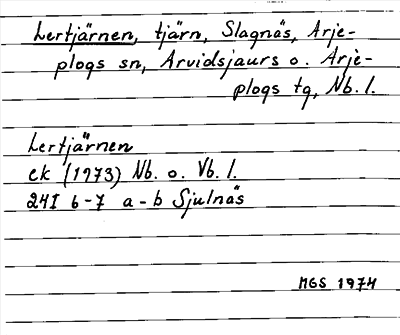 Lertjärnen, tjärn, Slagnäs, Arje-
plogs sn, Arvidsjaurs o. Arje-
plogs tg, Nb. l.
Lertjärnen
ek (1973) Nb. o. Vb. l.
24I 6-7 a-b Sjulnäs
MGS 1974